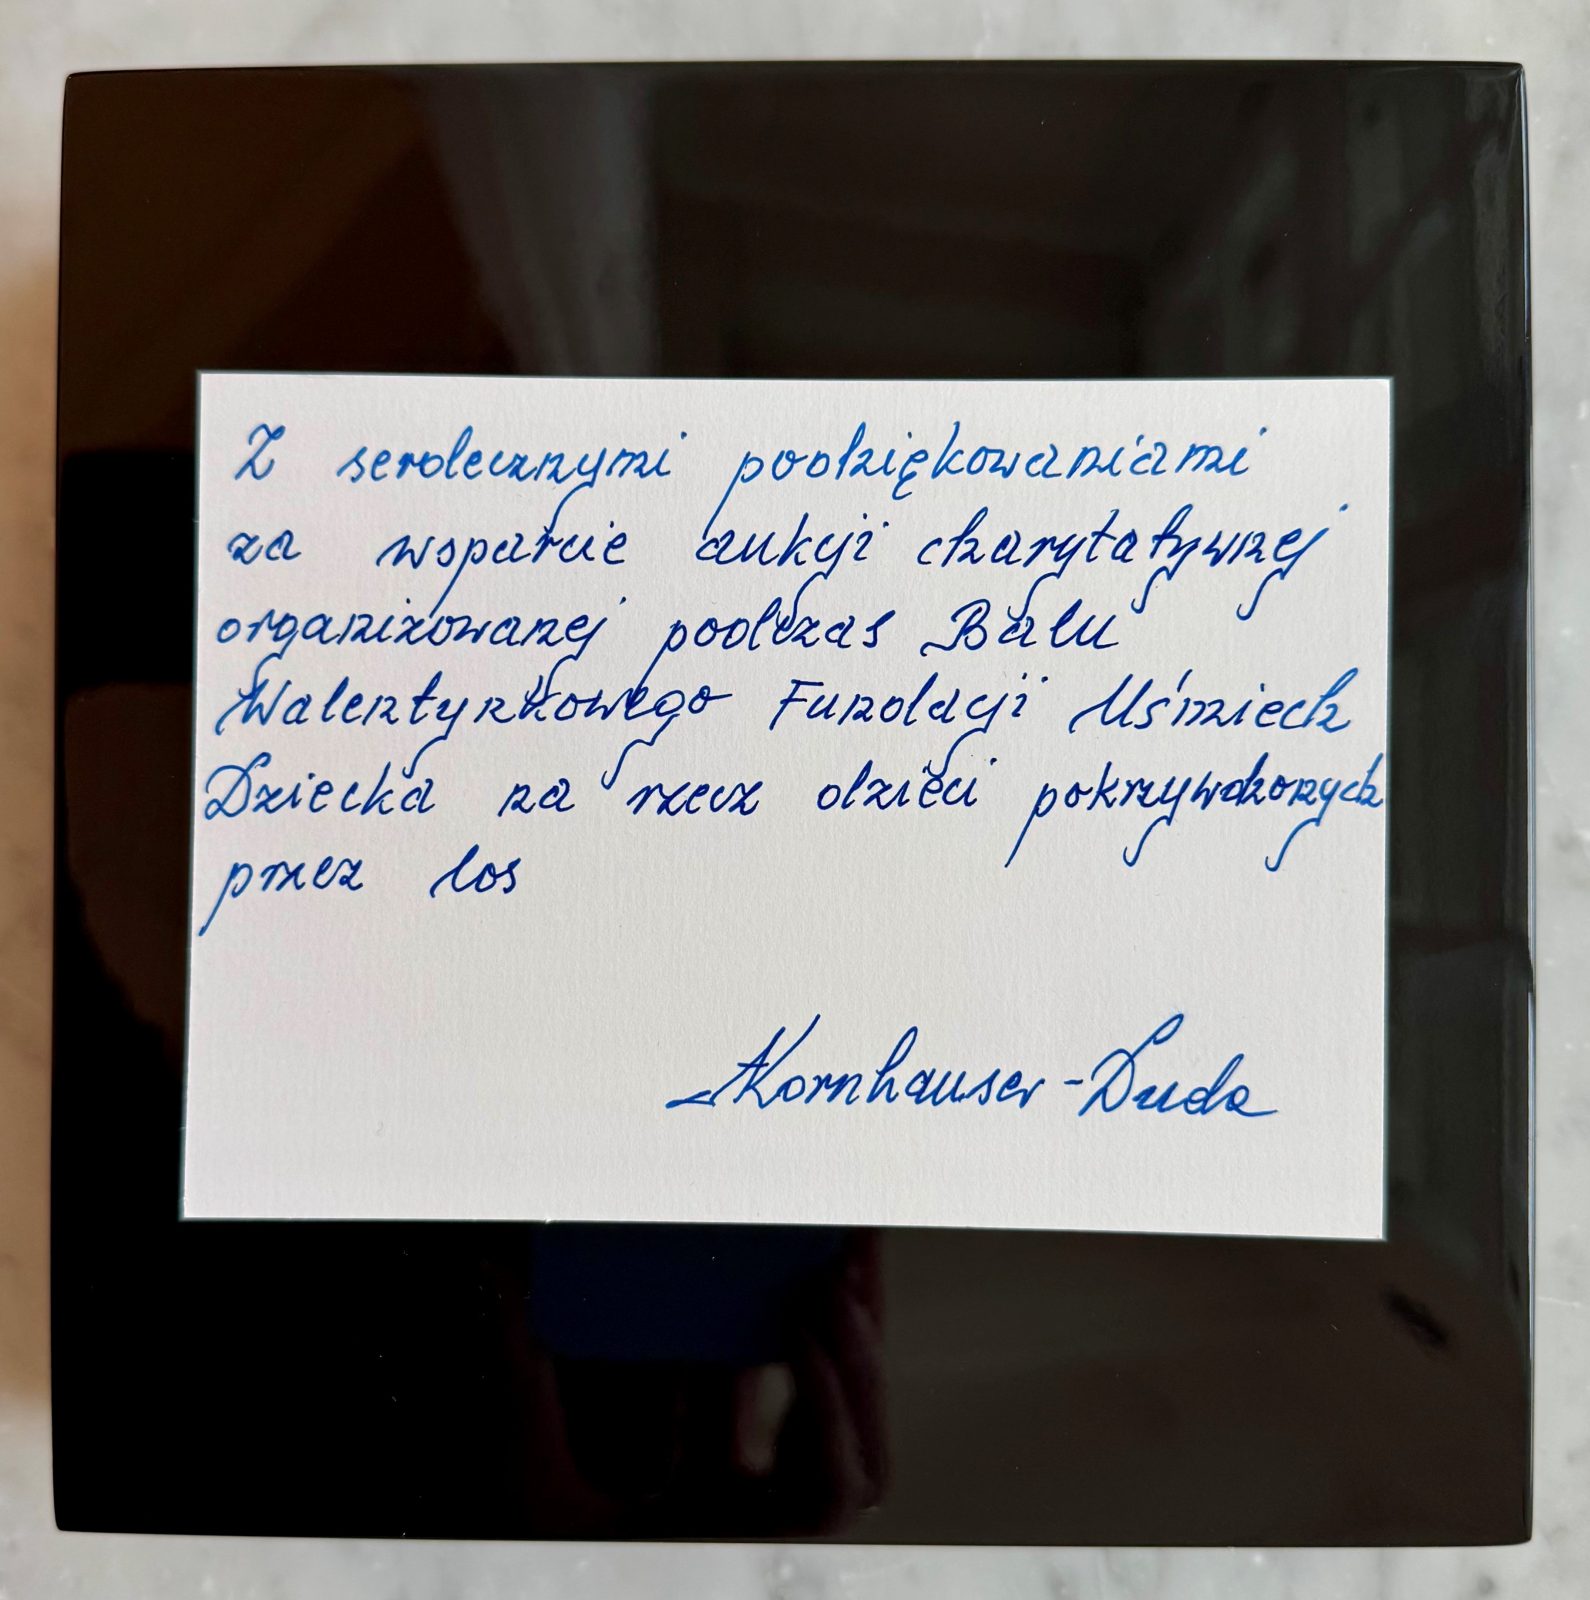 Z serdecznymi podziękowaniami
za wsparcie aukcji charytatywnej
organizowanej podczas Balu
Walentynkowego Fundacji Uśmiech
Dziecka na rzecz dzieci pokrzywdzonych
przez los
AKornhauser-Duda